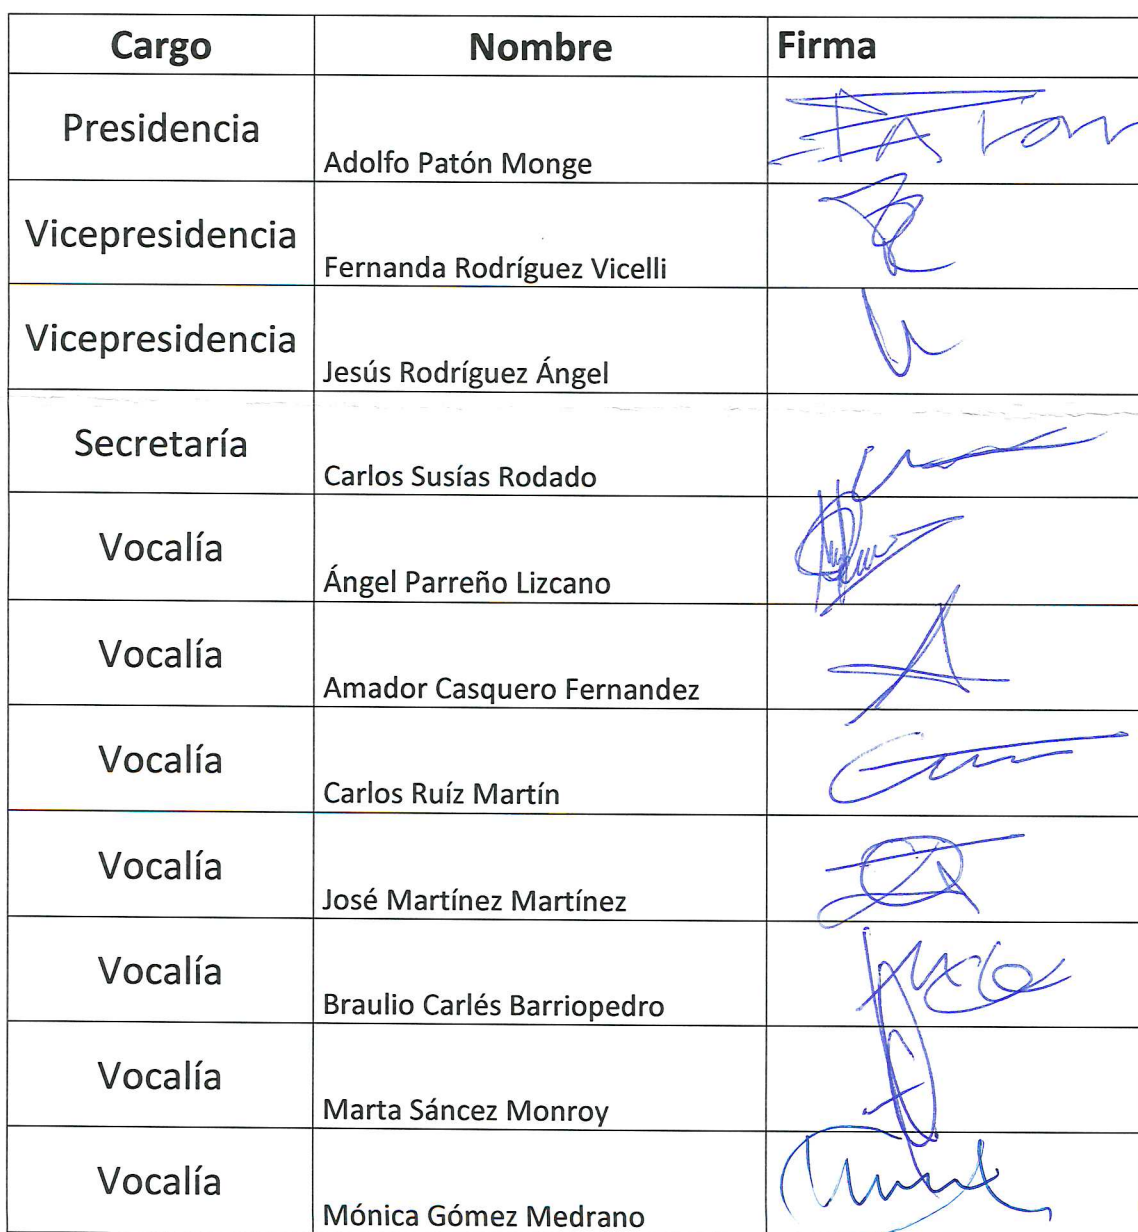 Cargo Nombre Firma
Presidencia Adolfo Patón Monge Paton
Vicepresidencia Fernanda Rodríguez Vicelli
Vicepresidencia Jesús Rodríguez Ángel
Secretaría Carlos Susías Rodado
Vocalía Ángel Parreño Lizcano
Vocalía Amador Casquero Fernandez
Vocalía Carlos Ruíz Martín
Vocalía José Martínez Martínez
Vocalía Braulio Carlés Barriopedro
Vocalía Marta Sáncez Monroy
Vocalía Mónica Gómez Medrano